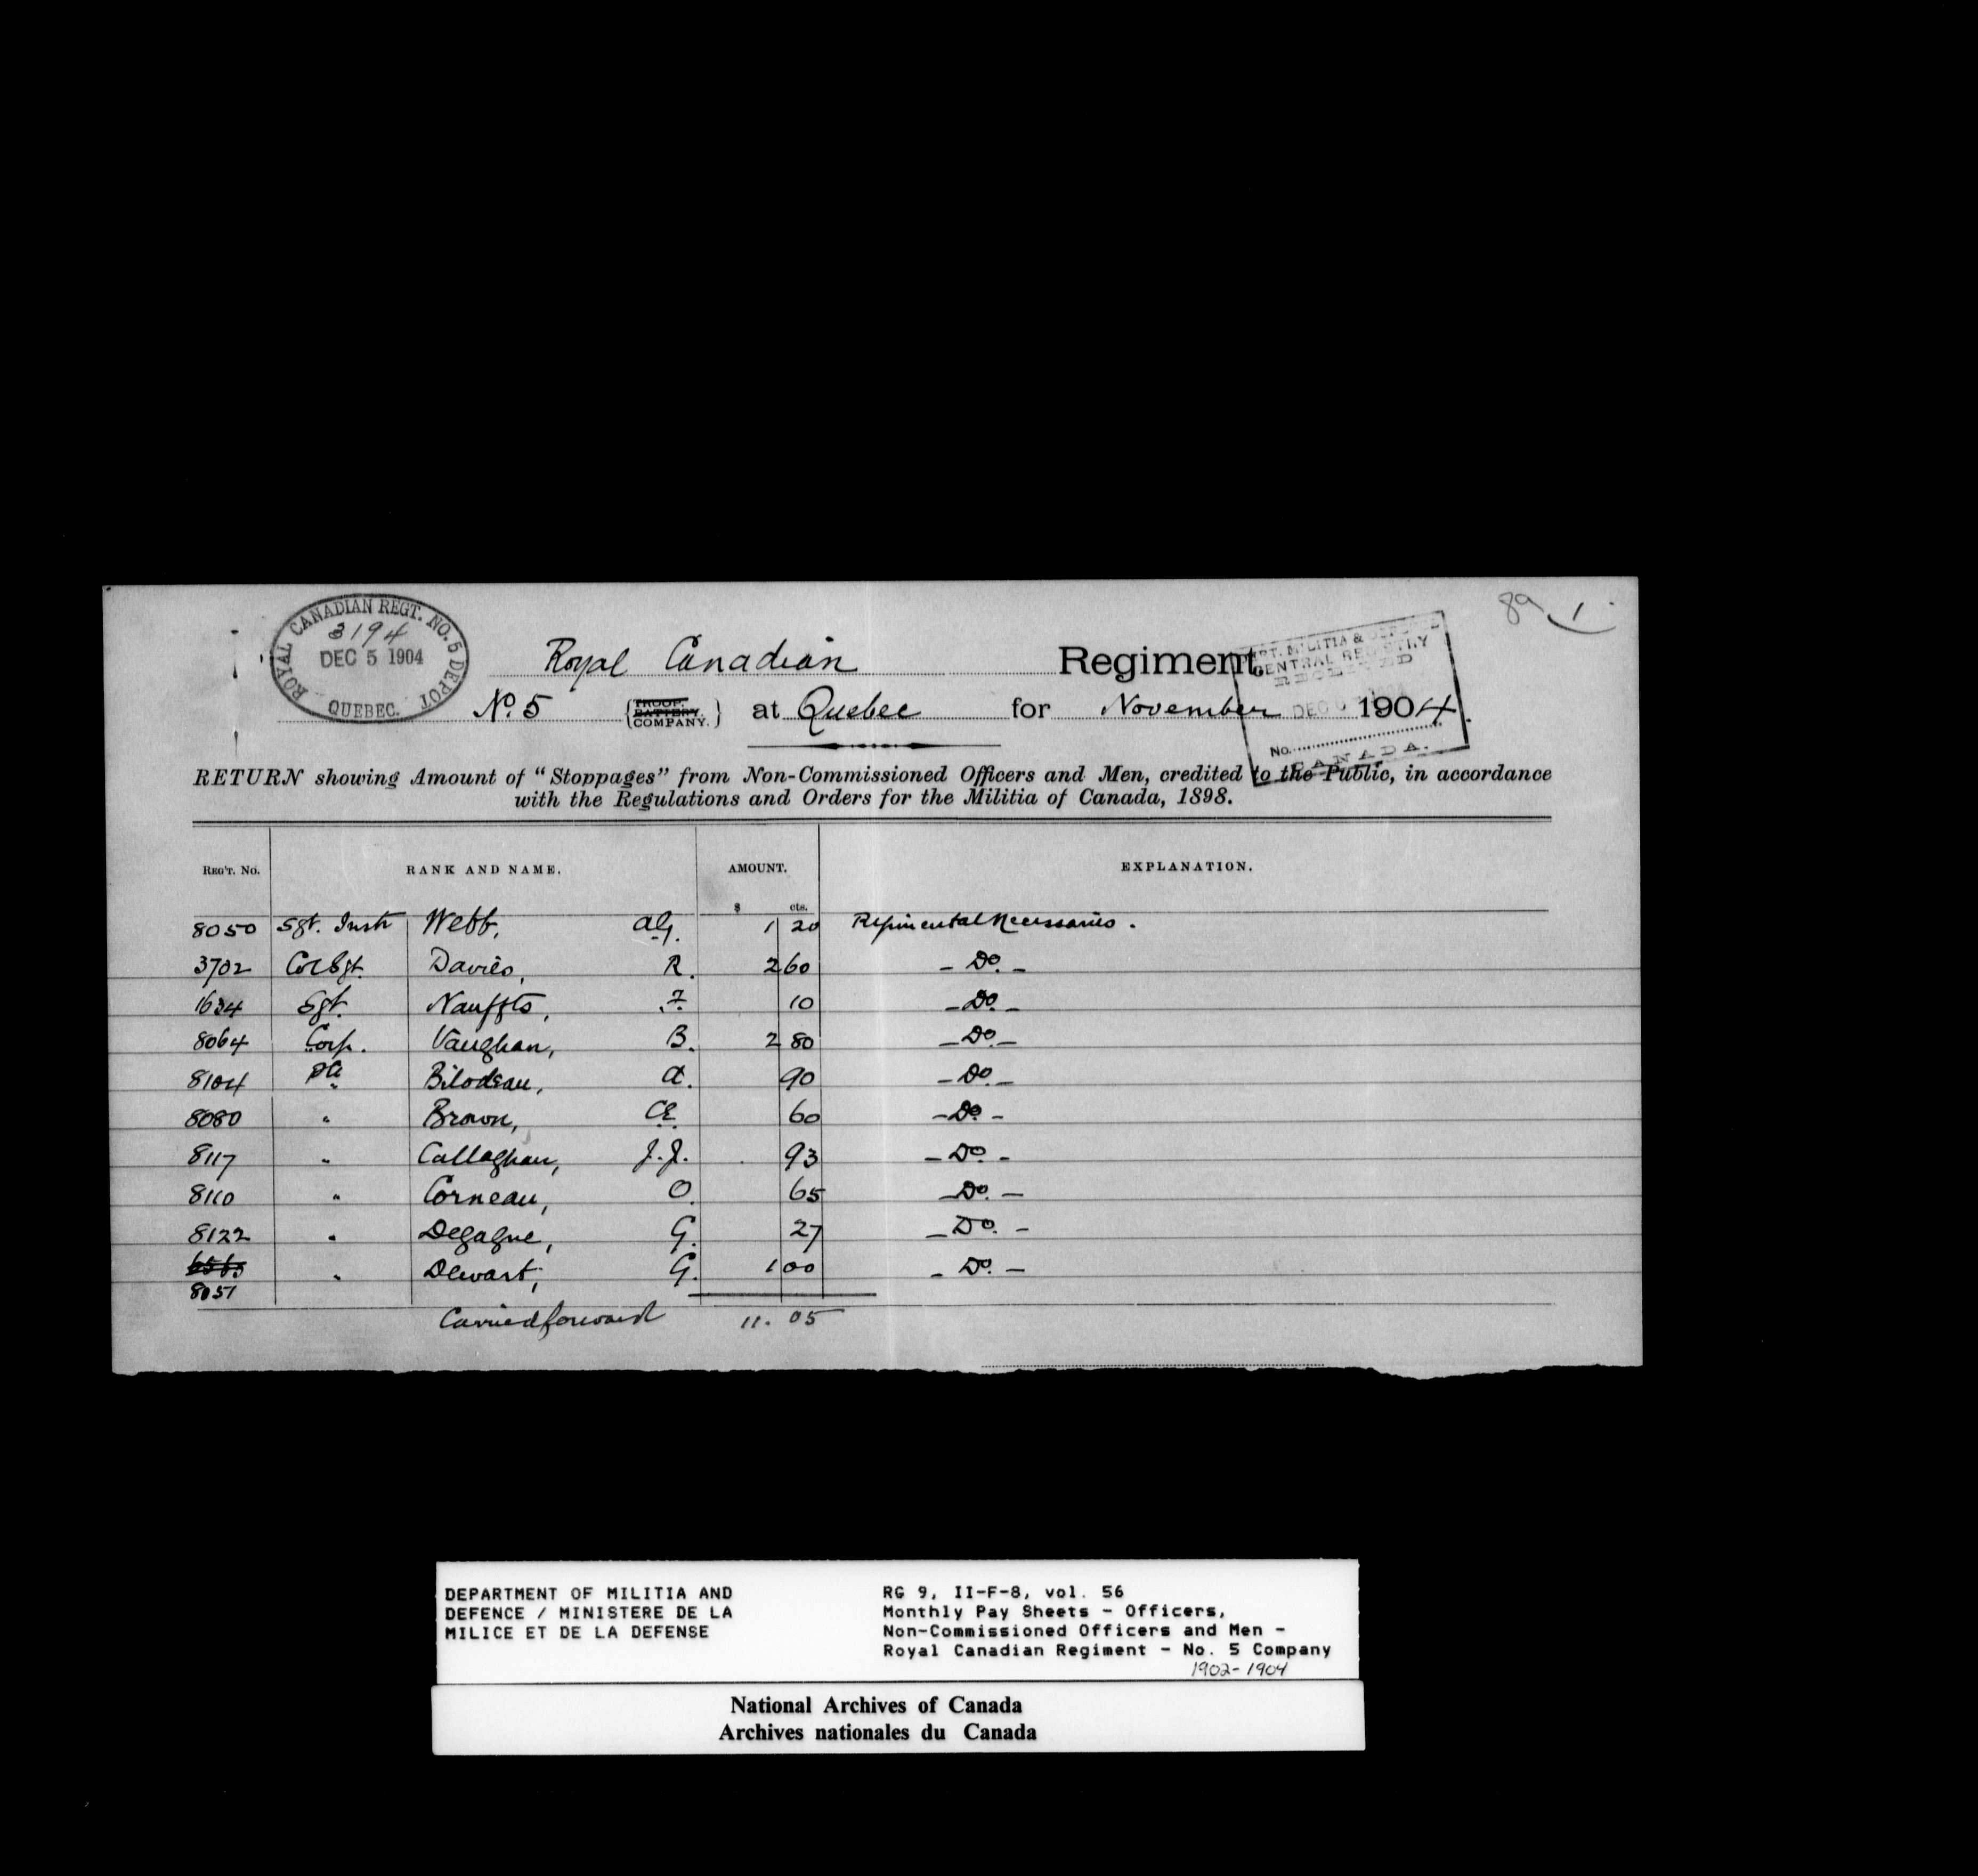 ROYAL CANADIAN REGT. NO. 5 DEPOT
3194
DEC 5 1904
QUEBEC.
89 1
Royal Canadian Regiment
DEPT. MILITIA & DEFENCE
CENTRAL REGISTRY
RECEIVED
DEC
No.
CANADA.
No. 5 {TROOP. BATTERY. COMPANY.} at Quebec for November 1904.
RETURN showing Amount of "Stoppages" from Non-Commissioned Officers and Men, credited to the Public, in accordance
with the Regulations and Orders for the Militia of Canada, 1898.
REG'T. NO. RANK AND NAME. AMOUNT. EXPLANATION.
$ cts.
8050 Sgt. Instr Webb, A.G. 1 20 Regimental Necessaries.
3702 Col Sgt. Davies, R. 2 60 - Do. -
1634 Sgt. Nauffts, F. 10 - Do -
8064 Corp. Vaughan, B. 2 80 - Do. -
8104 Pte Bilodeau, A. 90 - Do. -
8080 " Brown, C.E. 60 - Do. -
8117 " Callaghan, J.J. 93 - Do. -
8110 " Corneau, O. 65 - Do. -
8122 " Degagne, G. 27 - Do. -
6565 " Dewart, G. 1 00 - Do. -
8051
Carried forward 11. 05
DEPARTMENT OF MILITIA AND
DEFENCE / MINISTERE DE LA
MILICE ET DE LA DEFENSE
RG 9, II-F-8, vol. 56
Monthly Pay Sheets - Officers,
Non-Commissioned Officers and Men -
Royal Canadian Regiment - No. 5 Company
1902-1904
National Archives of Canada
Archives nationales du Canada